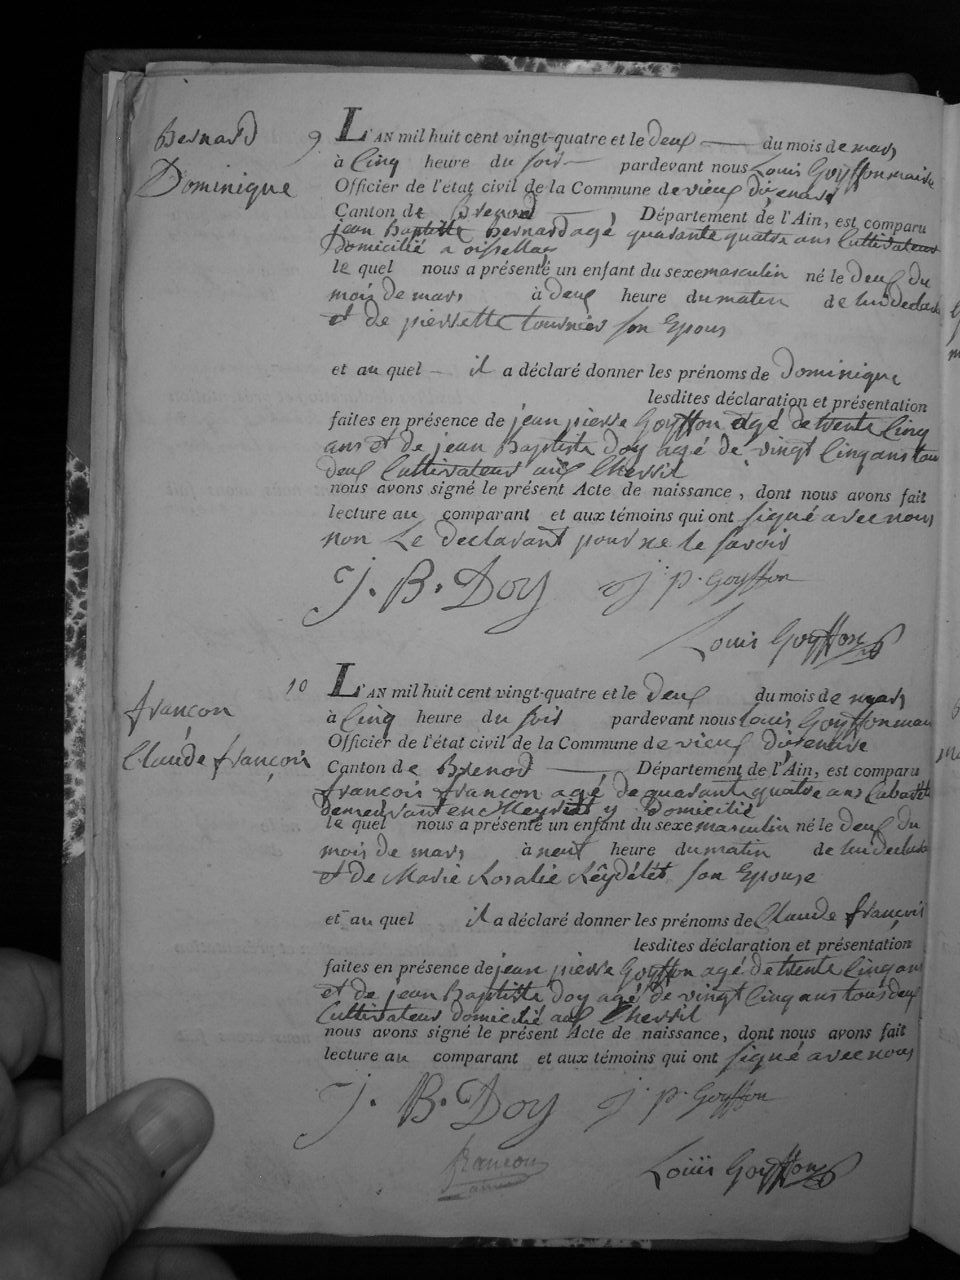 Bernard
Dominique
9.
L'AN mil huit cent vingt-quatre et le deux du mois de mars
à Cinq heure du soir pardevant nous Louis Goÿffon maire
Officier de l'état civil de la Commune de vieux disenave
Canton de Brenod Département de l'Ain, est comparu
jean Baptiste Bernard agé quarante quatre ans Cultivateur
Domicilié a
le quel nous a présenté un enfant du sexe masculin né le deux du
mois de mars à deux heure du matin de lui declarant
et de pierrette tournier son Epous
et au quel il a déclaré donner les prénoms de Dominique
lesdites déclaration et présentation
faites en présence de jean pierre Goÿffon agé de trente Cinq
ans et de jean Baptiste Doy agé de vingt Cinq ans tou
deux Cultivateur aux
nous avons signé le présent Acte de naissance, dont nous avons fait
lecture au comparant et aux témoins qui ont signé avec nous
non Le declarant pour ne le savoir
J. B. Doy j p. Goyffon
Louis Goyffon
françon
Claude françois
10
L'AN mil huit cent vingt-quatre et le deux du mois de mars
à Cinq heure du soir pardevant nous Louis Goÿffon
Officier de l'état civil de la Commune de vieux disenave
Canton de Brenod Département de l'Ain, est comparu
françois françon agé de quarante quatre ans
Demeurant en Meyriat y Domicilié
le quel nous a présenté un enfant du sexe masculin né le deux du
mois de mars à neuf heure du matin de lui declarant
et de Marie Rosalie Reÿdélét son Epouse
et au quel il a déclaré donner les prénoms de Claude françois
lesdites déclaration et présentation
faites en présence de jean pierre Goÿffon agé de trente Cinq ans
et de jean Baptiste Doy agé de vingt Cinq ans tous deux
Cultivateur domicilié aux
nous avons signé le présent Acte de naissance, dont nous avons fait
lecture au comparant et aux témoins qui ont signé avec nous
J. B. Doy j p. Goyffon
françon
Louis Goyffon